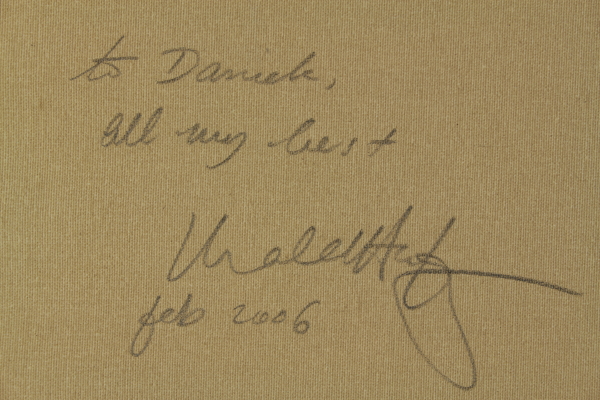 to Daniele,
all my best
feb 2006